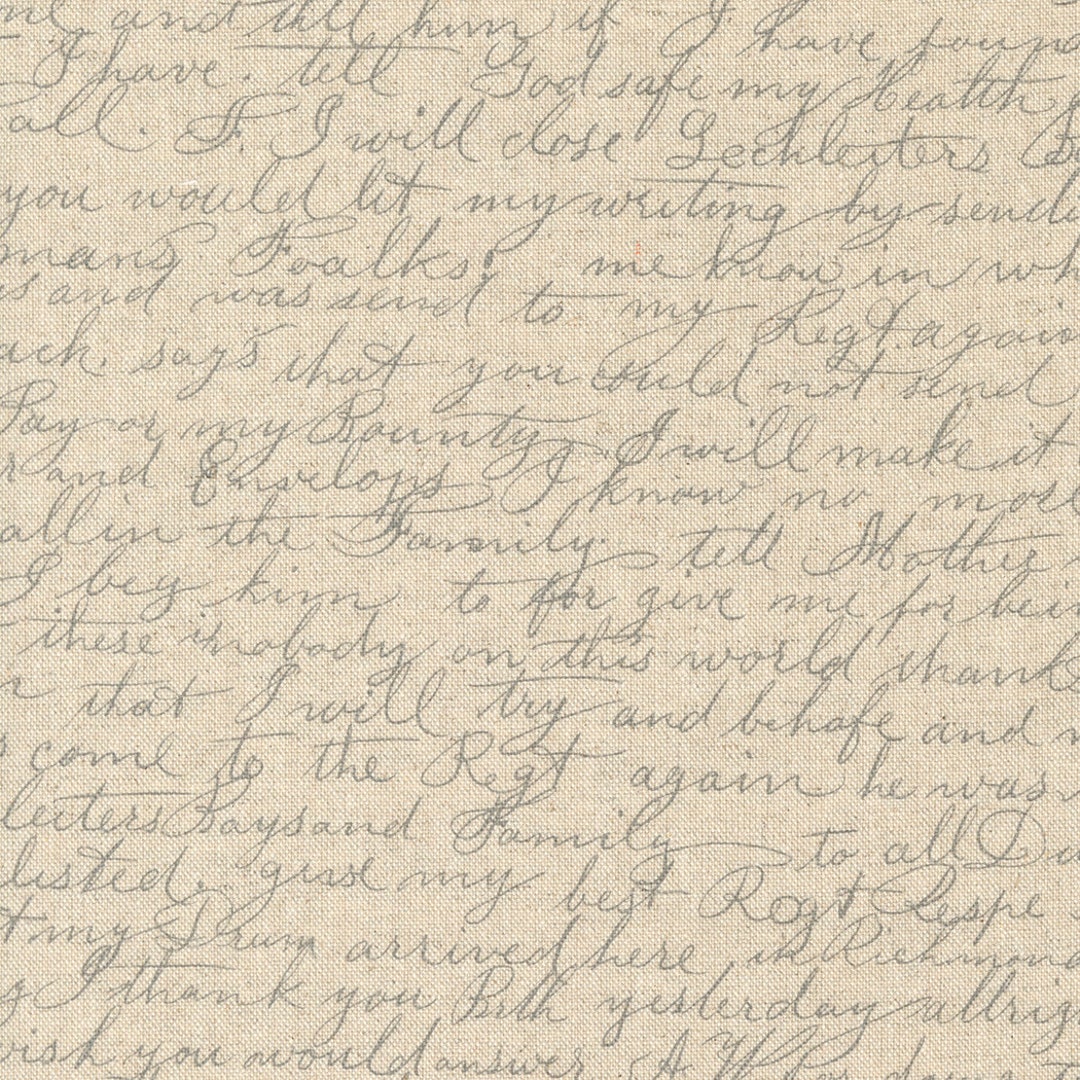 and tell him if I have found
I have. tell God safe my Health
all. F. I will close Lechleiters B
you would let my writing by sendi
mans Foalks, me know in wh
is and was send to my Regt. again
ack. says that you could not send
Pay or my Bounty, I will make it
r and Envelops I know no more
all in the Family tell Mother
I beg him to for give me for bein
these is nobody on this world thank
that I will try and behafe and
come to the Regt again he was
leiters Bays and Family to all D
listed, give my best Regt Respe
t my Drum arrived here in Richmond
g I thank you Beth yesterday allrig
wish you would answer